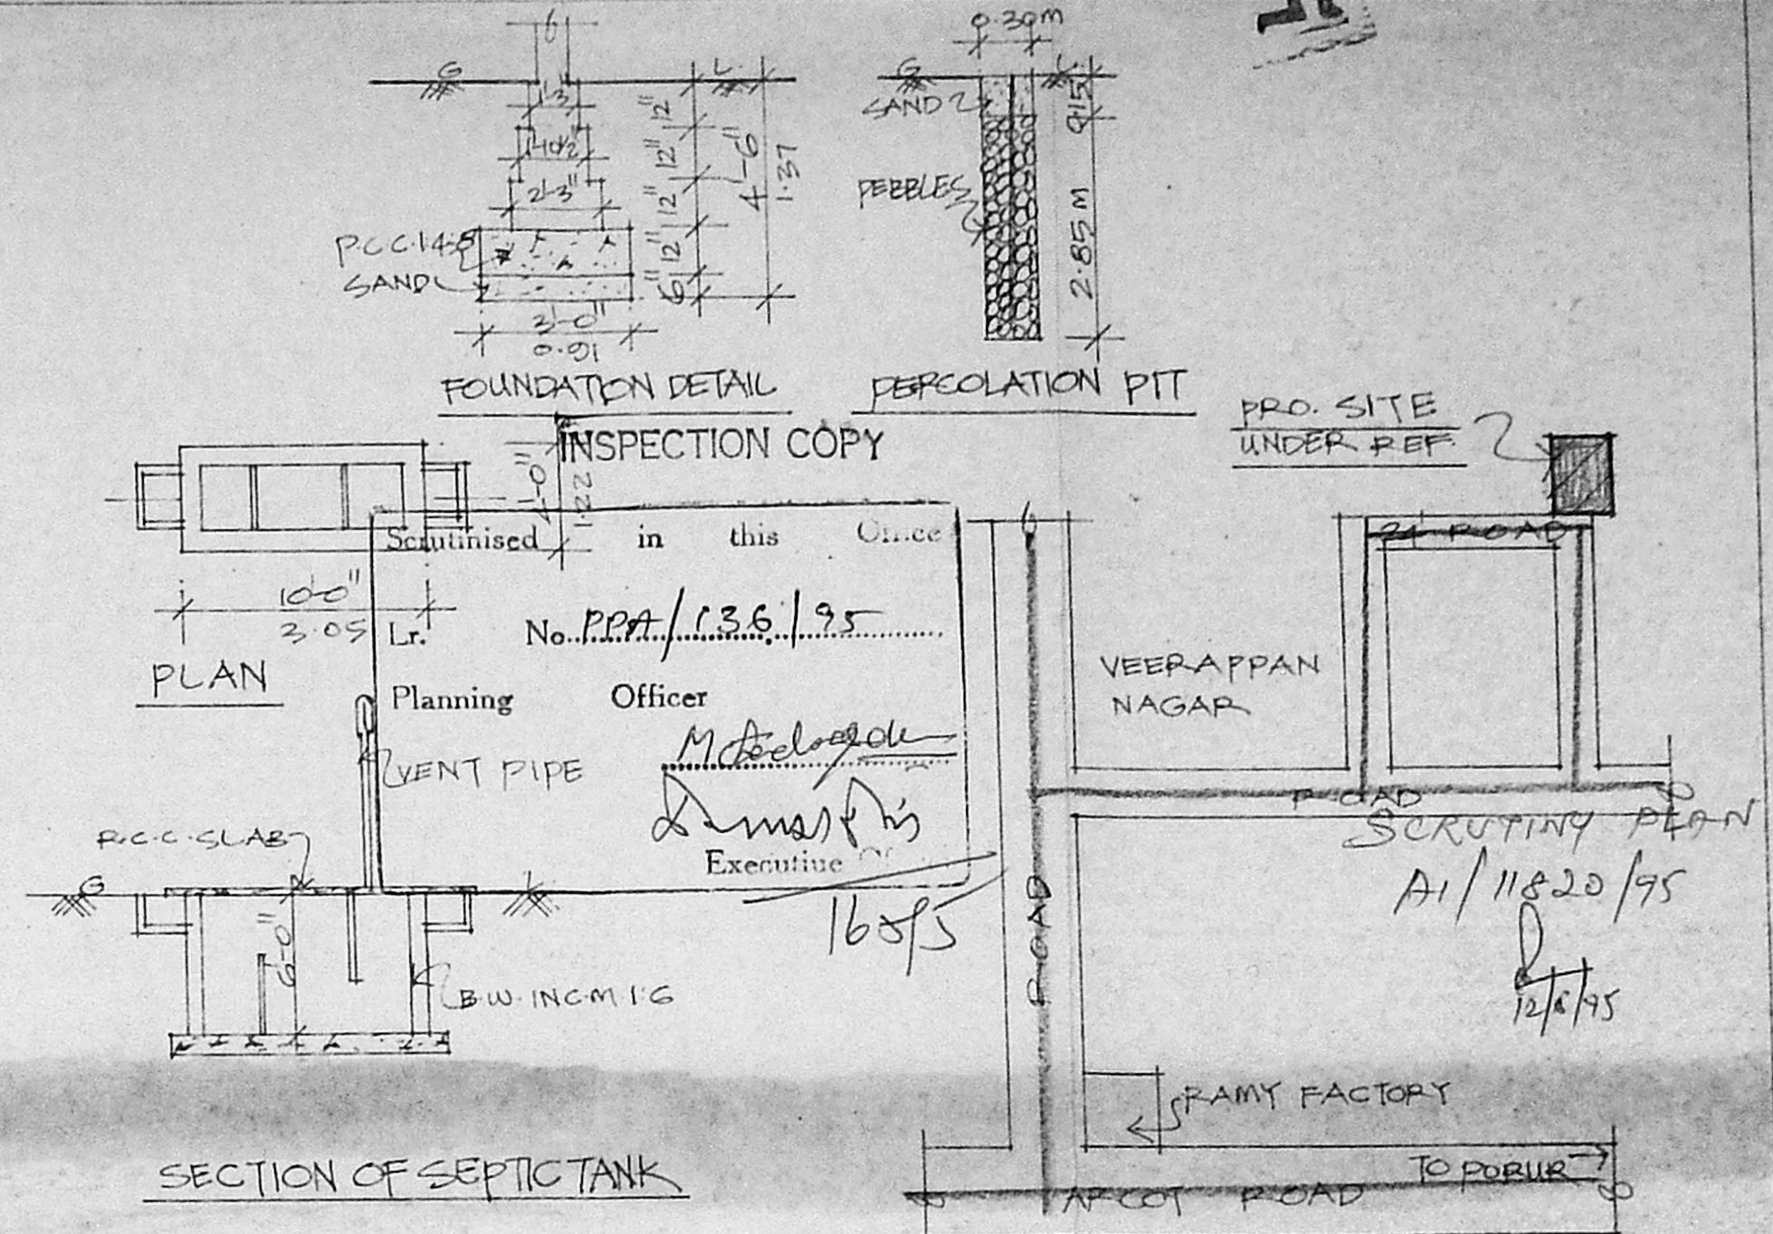 G
L.
1'-3"
1'-10½"
2'-3"
12"
12"
12"
12"
6"
4'-6"
1.37
P.C.C.1:4:8
SAND
3'-0"
0.91
FOUNDATION DETAIL
0.30M
G
L.
SAND
.915
PEBBLES
2.85M
PERCOLATION PIT
INSPECTION COPY
PRO. SITE
UNDER REF.
4'-0"
1.22
10'-0"
3.05
PLAN
Scrutinised in this Office
Lr. No. PPA/136/95
Planning Officer
Executive
VENT PIPE
R.C.C. SLAB
G
L
6'-0"
B.W. IN C.M 1:6
SECTION OF SEPTIC TANK
ROAD
VEERAPPAN
NAGAR
ROAD
ROAD
SCRUTINY PLAN
A1/11820/95
12/6/95
RAMY FACTORY
TO PORUR
ARCOT ROAD